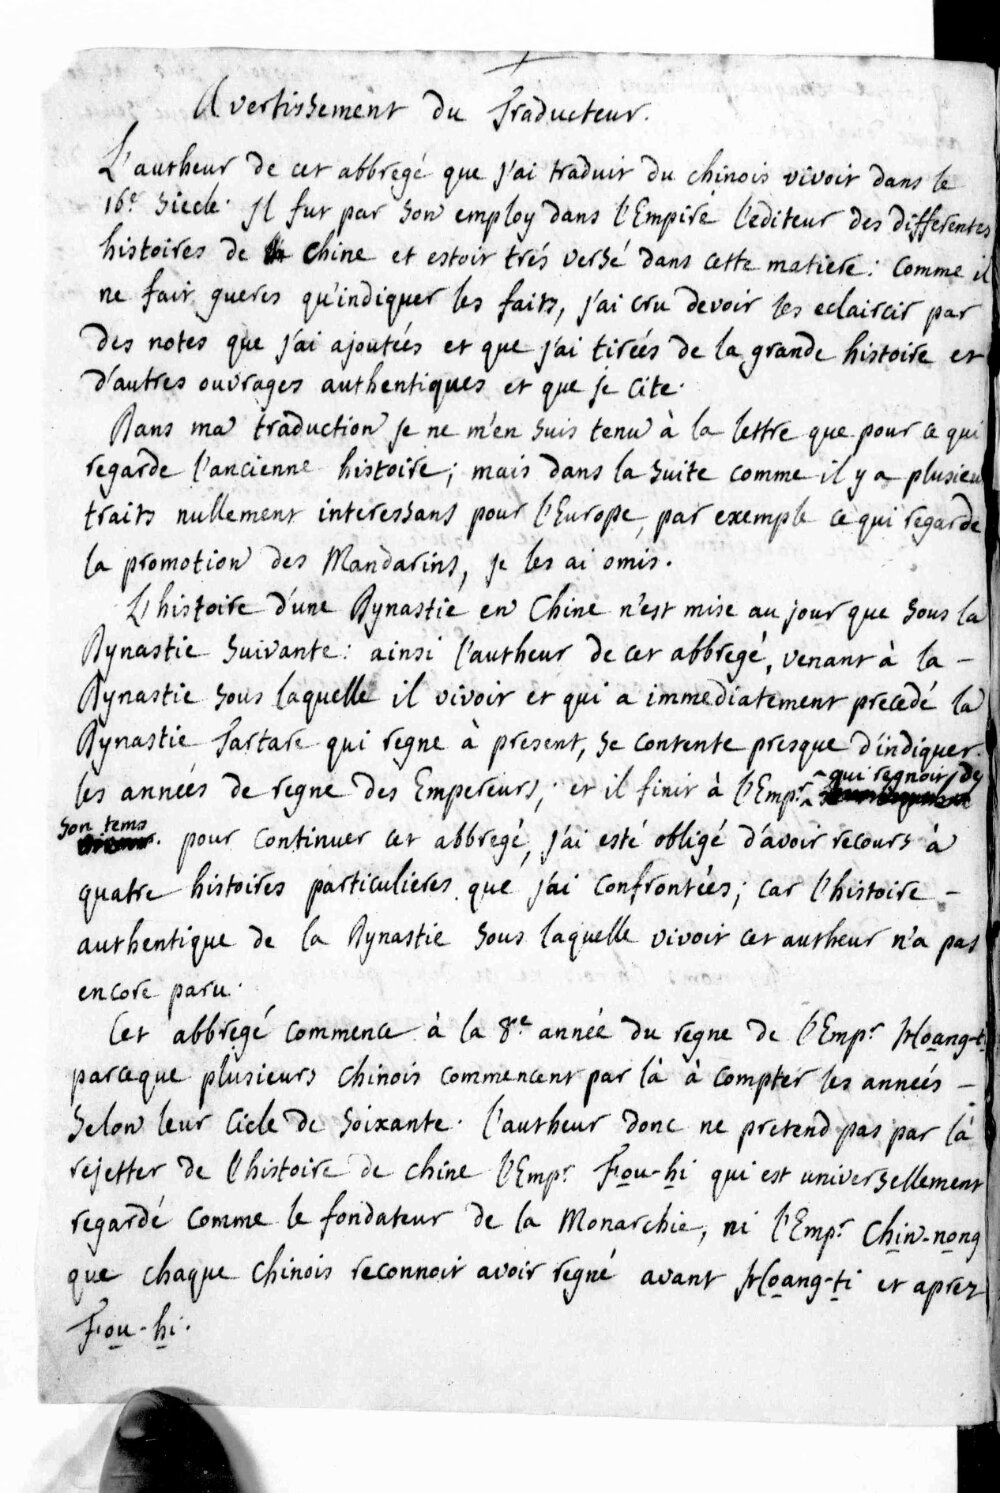 Avertissement du Traducteur.
L'autheur de cet abbregé que j'ai traduit du chinois vivoit dans le
16e siecle. Il fut par son employ dans l'Empire l'editeur des differentes
histoires de chine et estoit trés versé dans cette matiere: comme il
ne fait gueres qu'indiquer les faits, j'ai cru devoir les eclaircir par
des notes que j'ai ajoutées et que j'ai tirées de la grande histoire et
d'autres ouvrages authentiques et que je cite.
Dans ma traduction je ne m'en suis tenu à la lettre que pour ce qui
regarde l'ancienne histoire; mais dans la suite comme il y a plusieu
traits nullement interessans pour l'Europe, par exemple ce qui regarde
la promotion des Mandarins, je les ai omis.
L'histoire d'une Dynastie en Chine n'est mise au jour que sous la
Dynastie suivante: ainsi l'autheur de cet abbregé, venant à la -
Dynastie sous laquelle il vivoit et qui a immediatement precedé la
Dynastie Tartare qui regne à present, se contente presque d'indiquer
les années de regne des Empereurs; et il finit à l'Empr. qui regnoit de
son tems. pour continuer cet abbregé, j'ai esté obligé d'avoir recours à
quatre histoires particulieres que j'ai confrontées; car l'histoire -
authentique de la Dynastie sous laquelle vivoit cet autheur n'a pas
encore paru.
Cet abbregé commence à la 8e année du regne de l'Empr Hoang-ti
parceque plusieurs chinois commencent par là à compter les années -
selon leur cicle de soixante. l'autheur donc ne pretend pas par là
rejetter de l'histoire de chine l'Empr Fou-hi qui est universellement
regardé comme le fondateur de la Monarchie, ni l'Empr Chin-nong
que chaque chinois reconnoit avoir regné avant Hoang-ti et aprez
Fou-hi.